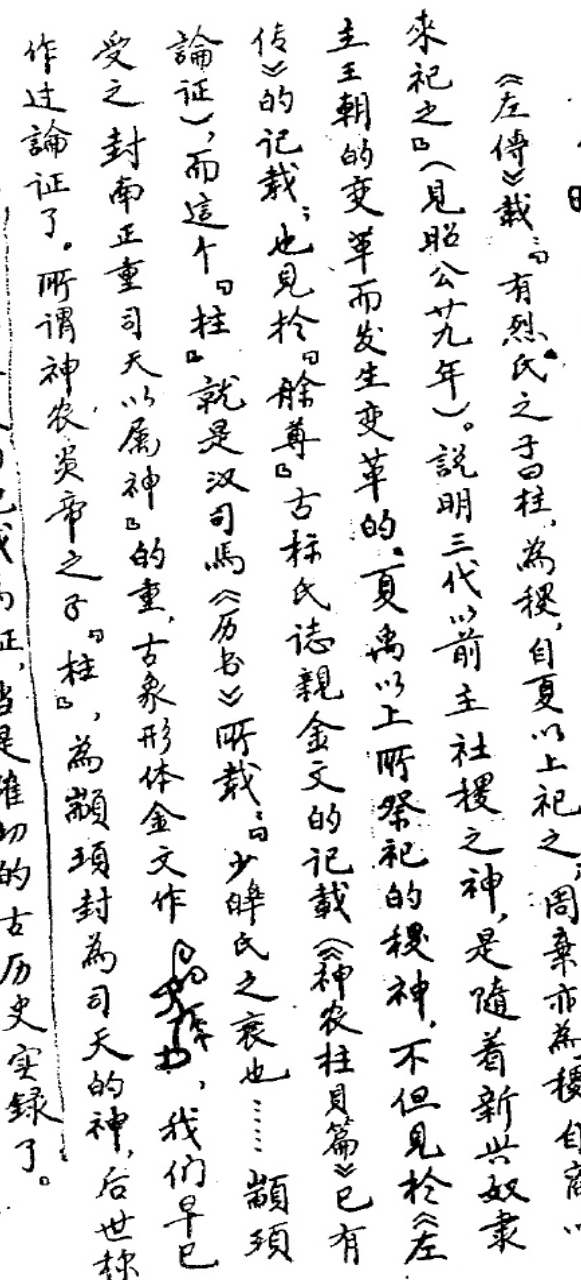 《左傳》載:“有烈氏之子曰柱,為稷,自夏以上祀之;周棄亦為稷自商以
來祀之”(見昭公廿九年)。説明三代以前主社稷之神,是隨着新兴奴隶
主王朝的变革而发生变革的。夏禹以上所祭祀的稷神,不但見於《左
传》的记载;也見於“艅尊”古标氏誌親金文的记載(《神农柱貝篇》已有
論证),而這个“柱”就是汉司馬《历书》所载:“少皞氏之衰也……顓頊
受之封南正重司天以属神”的重,古象形体金文作,我们早已
作过論证了。所谓神农炎帝之子“柱”,為顓頊封為司天的神,后世称
正,当是確切的古历史实録了。